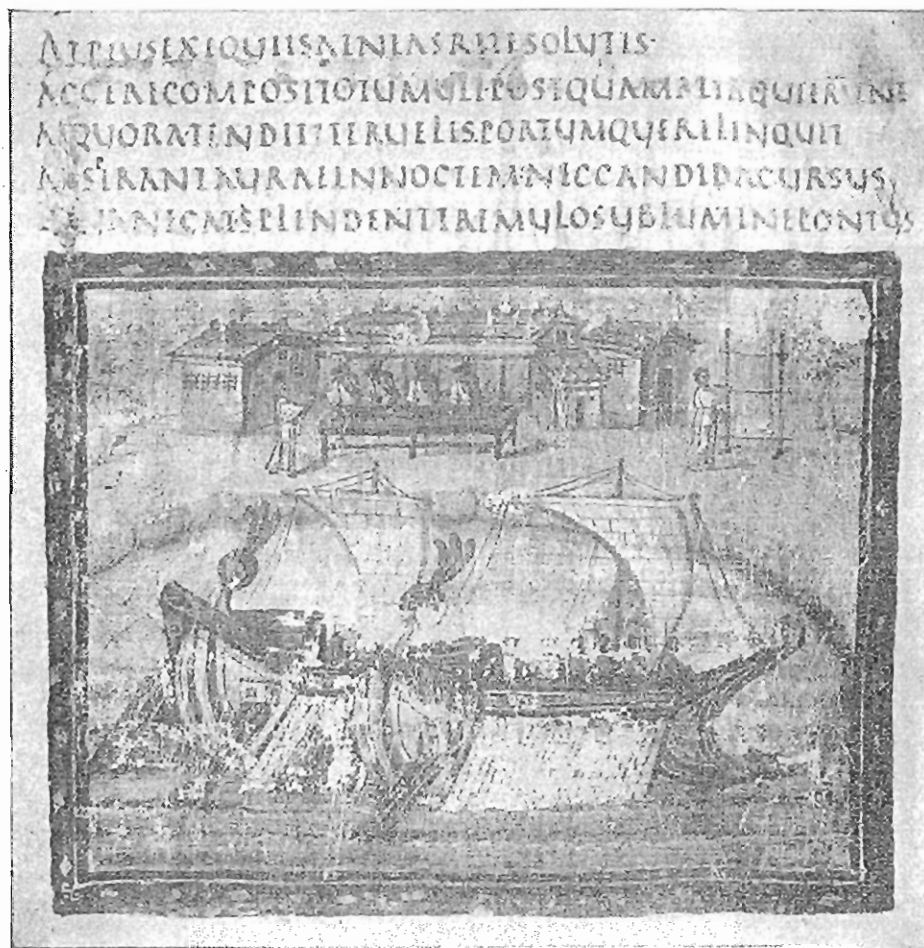 ATPIUSEXEQUIISAENEASRITESOLUTIS·
AGGERECOMPOSITOTUMULI·POSTQUAMALTAQUIERUNT
AEQUORATENDITITERUELIS·PORTUMQUERELINQUIT
ASPIRANTAURAEINNOCTEM·NECCANDIDACURSUS
LUNANEGAT·SPLENDETTREMULOSUBLUMINEPONTUS